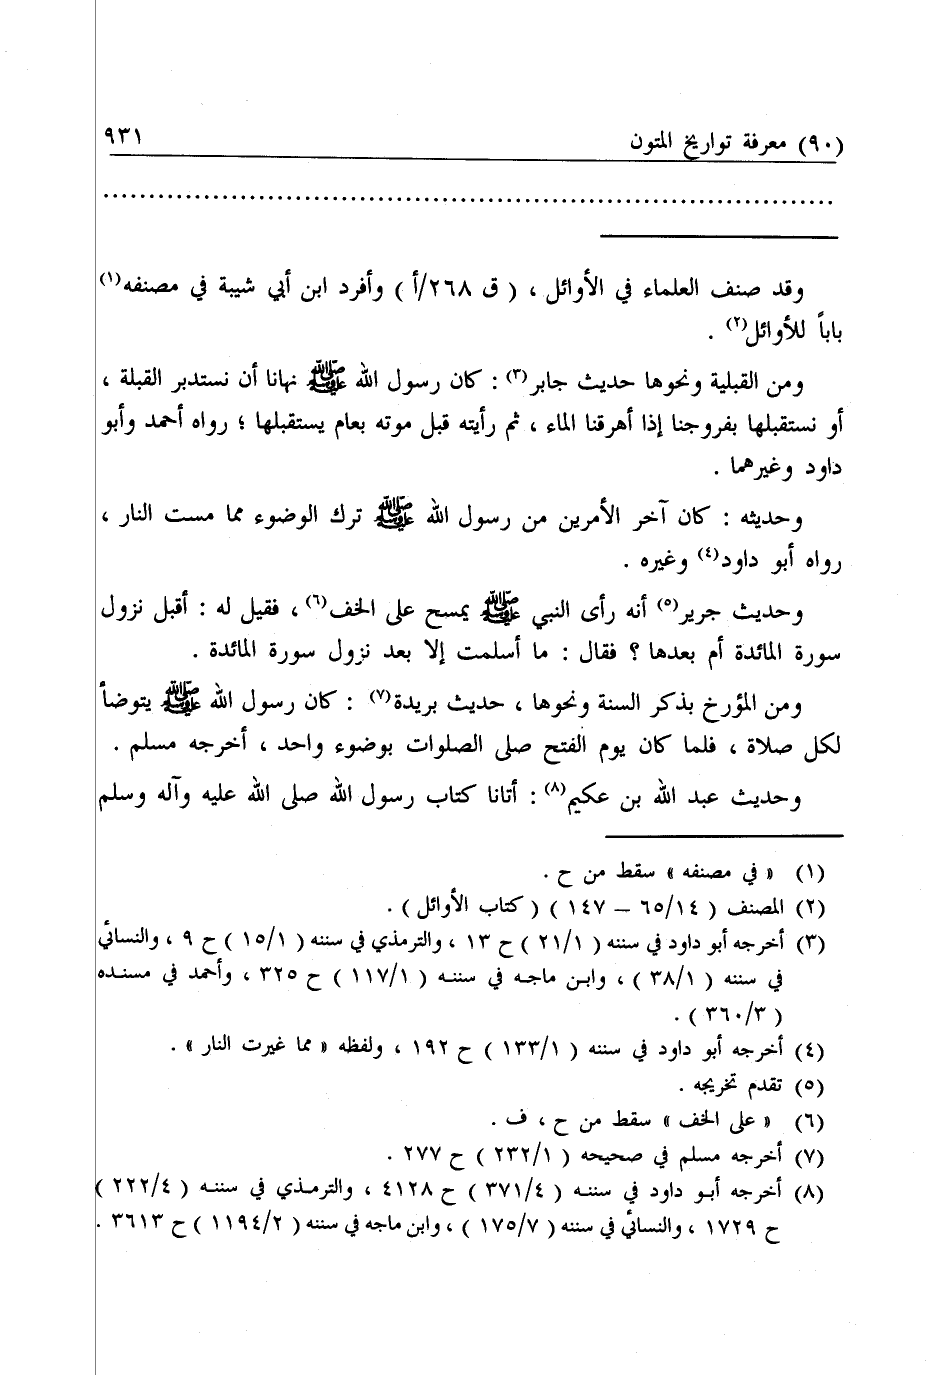 (٩٠) معرفة تواريخ المتون ٩٣١
وقد صنف العلماء في الأوائل ، ( ق ٢٦٨/أ ) وأفرد ابن أبي شيبة في مصنفه(١)
باباً للأوائل(٢) .
ومن القبلية ونحوها حديث جابر(٣) : كان رسول الله ﷺ نهانا أن نستدبر القبلة ،
أو نستقبلها بفروجنا إذا أهرقنا الماء ، ثم رأيته قبل موته بعام يستقبلها ؛ رواه أحمد وأبو
داود وغيرهما .
وحديثه : كان آخر الأمرين من رسول الله ﷺ ترك الوضوء مما مست النار ،
رواه أبو داود(٤) وغيره .
وحديث جرير(٥) أنه رأى النبي ﷺ يمسح على الخف(٦) ، فقيل له : أقبل نزول
سورة المائدة أم بعدها ؟ فقال : ما أسلمت إلا بعد نزول سورة المائدة .
ومن المؤرخ بذكر السنة ونحوها ، حديث بريدة(٧) : كان رسول الله ﷺ يتوضأ
لكل صلاة ، فلما كان يوم الفتح صلى الصلوات بوضوء واحد ، أخرجه مسلم .
وحديث عبد الله بن عكيم(٨) : أتانا كتاب رسول الله صلى الله عليه وآله وسلم
(١) « في مصنفه » سقط من ح .
(٢) المصنف ( ٦٥/١٤ – ١٤٧ ) ( كتاب الأوائل ) .
(٣) أخرجه أبو داود في سننه ( ٢١/١ ) ح ١٣ ، والترمذي في سننه ( ١٥/١ ) ح ٩ ، والنسائي
في سننه ( ٣٨/١ ) ، وابن ماجه في سننه ( ١١٧/١ ) ح ٣٢٥ ، وأحمد في مسنده
( ٣٦٠/٣ ) .
(٤) أخرجه أبو داود في سننه ( ١٣٣/١ ) ح ١٩٢ ، ولفظه « مما غيرت النار » .
(٥) تقدم تخريجه .
(٦) « على الخف » سقط من ح ، ف .
(٧) أخرجه مسلم في صحيحه ( ٢٣٢/١ ) ح ٢٧٧ .
(٨) أخرجه أبو داود في سننه ( ٣٧١/٤ ) ح ٤١٢٨ ، والترمذي في سننه ( ٢٢٢/٤ )
ح ١٧٢٩ ، والنسائي في سننه ( ١٧٥/٧ ) ، وابن ماجه في سننه ( ١١٩٤/٢ ) ح ٣٦١٣ .